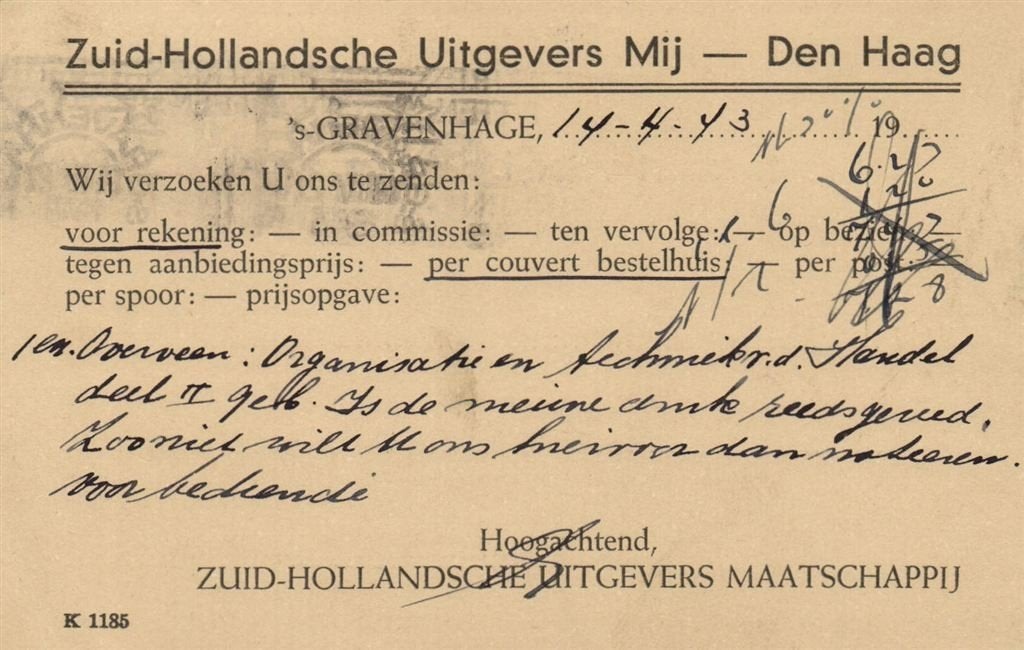 Zuid-Hollandsche Uitgevers Mij — Den Haag
's-GRAVENHAGE, 14-4-43 19
Wij verzoeken U ons te zenden:
voor rekening: — in commissie: — ten vervolge: — op bezien —
tegen aanbiedingsprijs: — per couvert bestelhuis: — per post:
per spoor: — prijsopgave:
1 ex. Overveen: Organisatie en techniek v. d. Handel
deel II geb. Is de nieuwe druk reeds gereed.
Zoo niet wilt U ons hiervoor dan noteeren.
voor bediende
Hoogachtend,
ZUID-HOLLANDSCHE UITGEVERS MAATSCHAPPIJ
K 1185